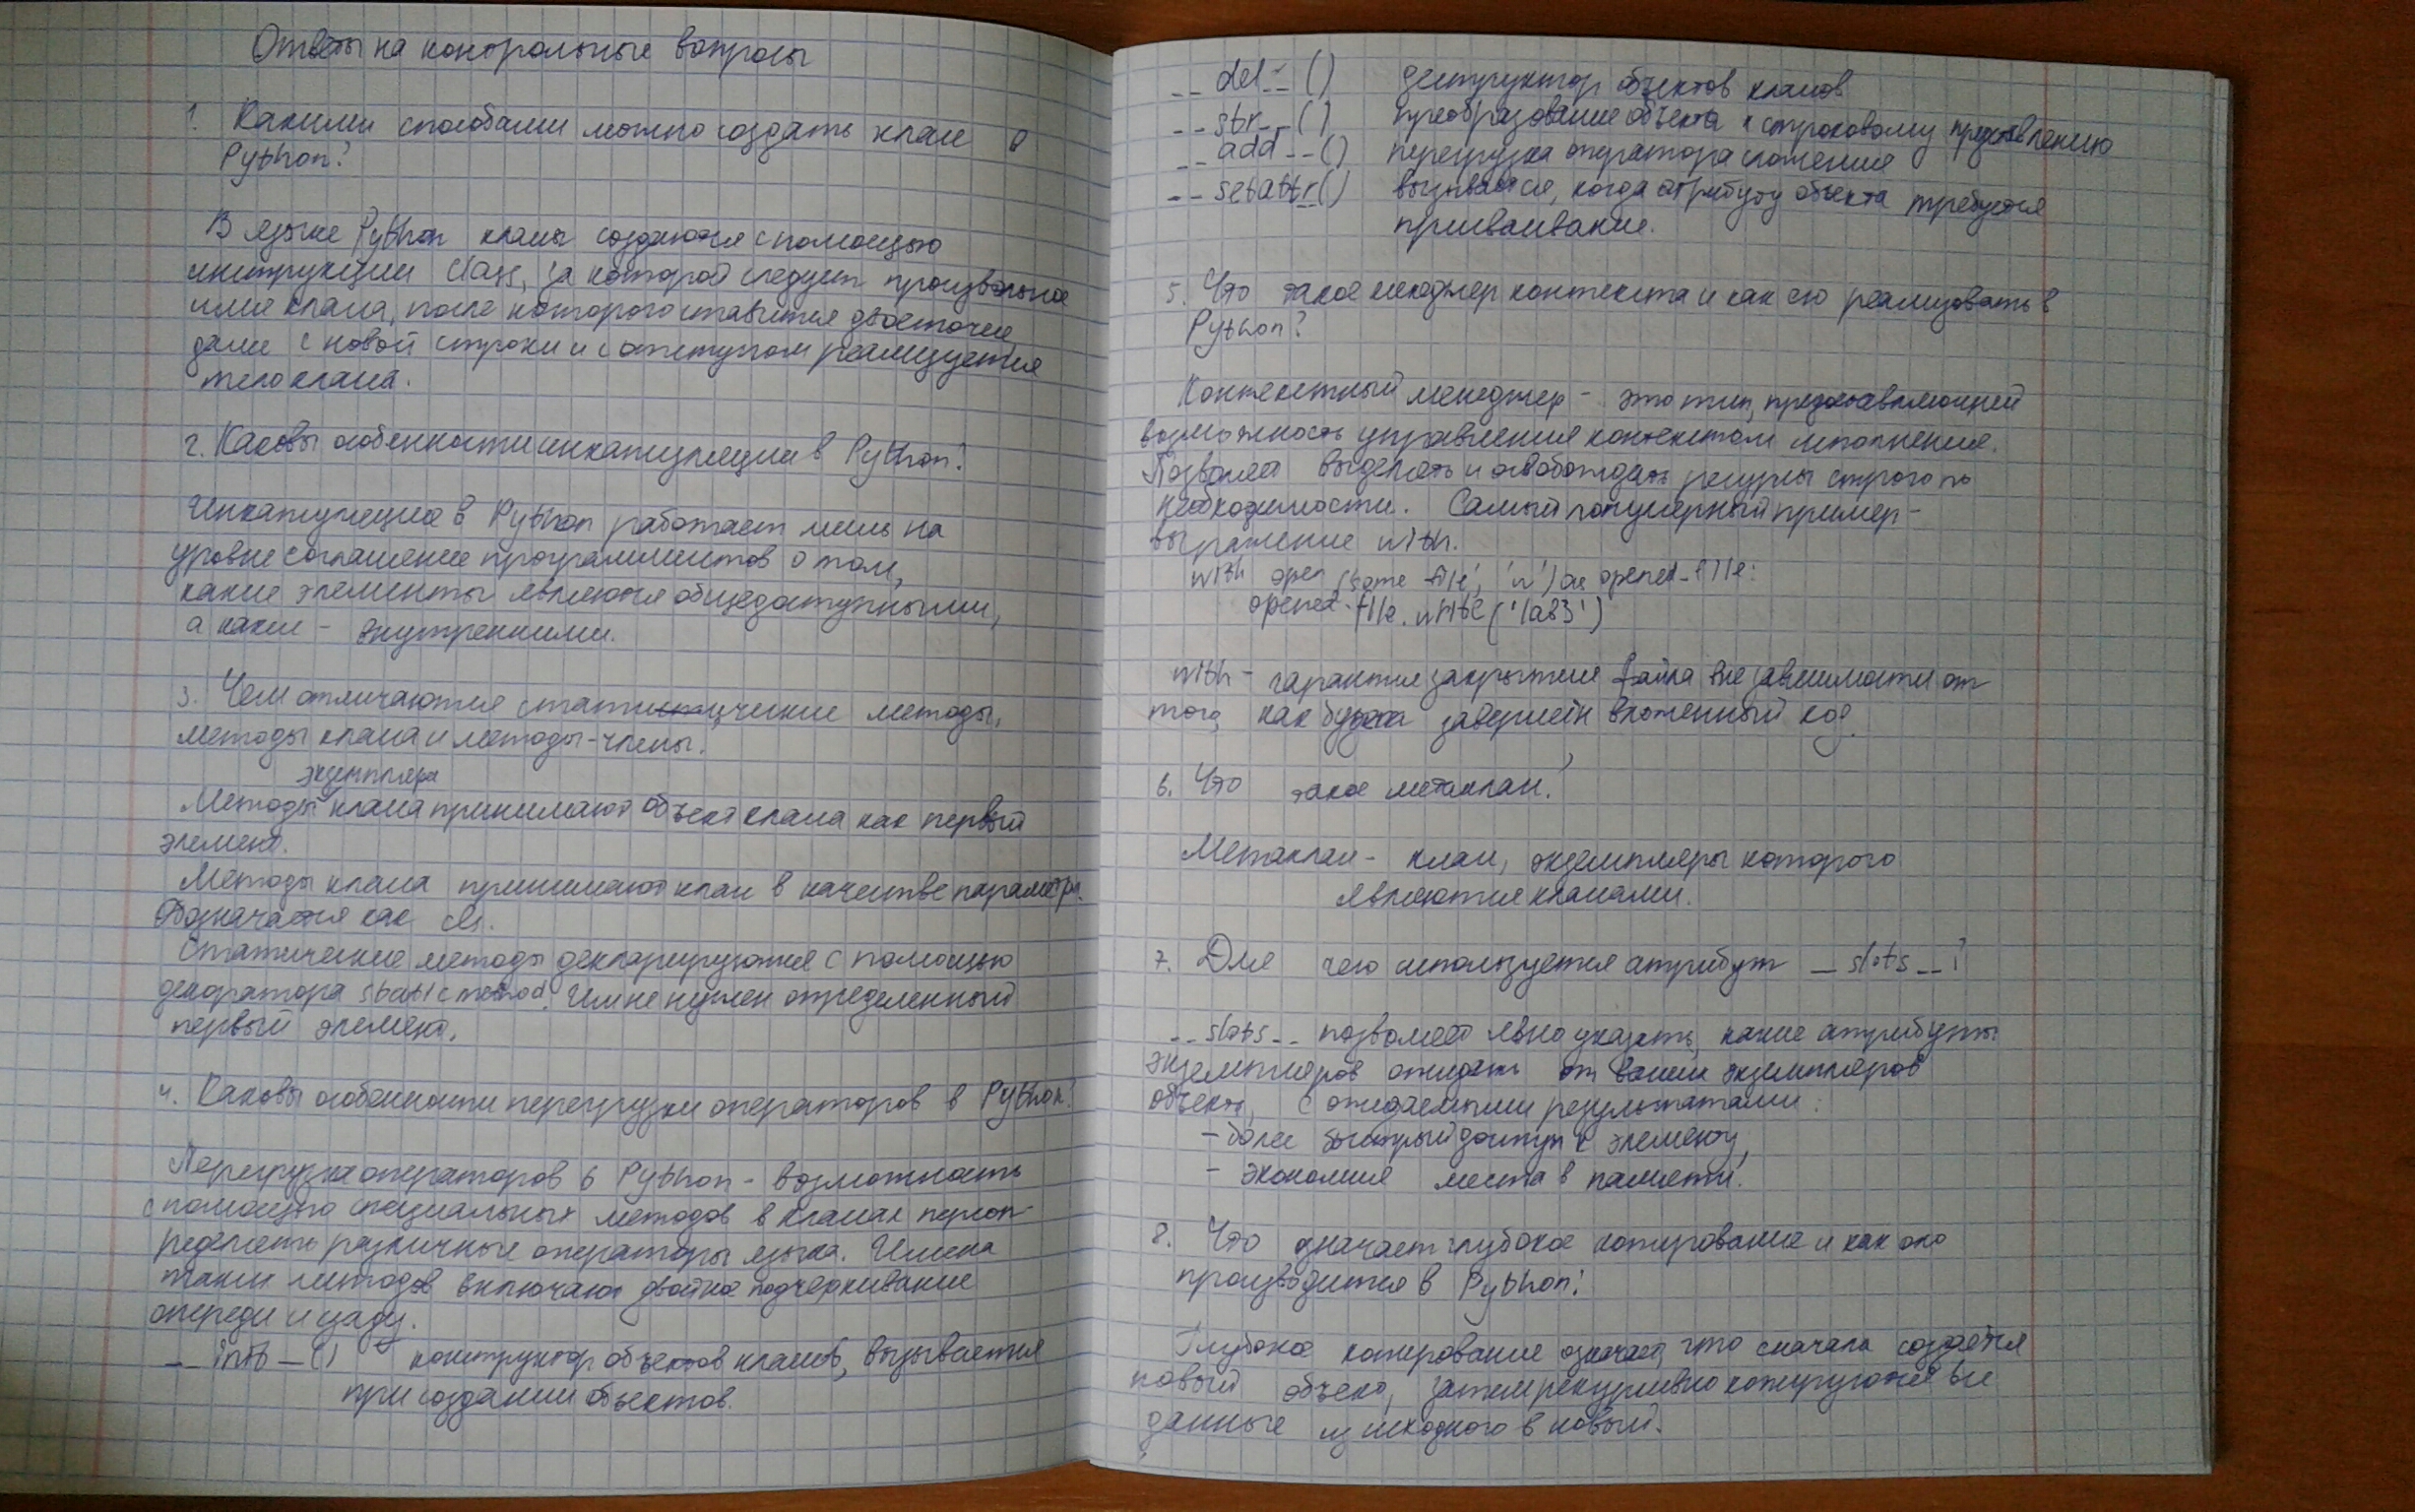 Ответы на контрольные вопросы
1. Какими способами можно создать класс в
Python?
В языке Python классы создаются с помощью
инструкции class, за которой следует произвольное
имя класса, после которого ставится двоеточие,
далее с новой строки и с отступом реализуется
тело класса.
2. Каковы особенности инкапсуляции в Python?
Инкапсуляция в Python работает лишь на
уровне соглашения программистов о том,
какие элементы являются общедоступными,
а какие - внутренними.
3. Чем отличаются статические методы,
методы класса и методы-члены.
экземпляра
Методы класса принимают объект класса как первый
элемент.
Методы класса принимают класс в качестве параметра.
Обозначается как cls.
Статические методы декларируются с помощью
декоратора staticmethod. Им не нужен определенный
первый элемент.
4. Каковы особенности перегрузки операторов в Python?
Перегрузка операторов в Python - возможность
с помощью специальных методов в классах переоп-
ределять различные операторы языка. Имена
таких методов включают двойное подчеркивание
спереди и сзади.
__init__() конструктор объектов классов, вызывается
при создании объектов.
__del__() деструктор объектов классов
__str__() преобразование объекта к строковому представлению
__add__() перегрузка оператора сложения
__setattr__() вызывается, когда атрибуту объекта требуется
присваивание.
5. Что такое менеджер контекста и как его реализовать в
Python?
Контекстный менеджер - это тип, предоставляющий
возможность управления контекстом исполнения.
Позволяет выделять и освобождать ресурсы строго по
необходимости. Самый популярный пример -
выражение with.
with open ('some file', 'w') as opened_file:
opened_file.write('Габ3')
with - гарантия закрытия файла вне зависимости от
того, как будет завершён вложенный код.
6. Что такое метакласс?
Метакласс - класс, экземпляры которого
являются классами.
7. Для чего используется атрибут __slots__?
__slots__ позволяет явно указать, какие атрибуты
экземпляров ожидать от ваших экземпляров
объекта, с ожидаемыми результатами:
- более быстрый доступ к элементу,
- экономия места в памяти.
8. Что означает глубокое копирование и как оно
производится в Python?
Глубокое копирование означает, что сначала создаётся
новый объект, затем рекурсивно копируются все
данные из исходного в новый.